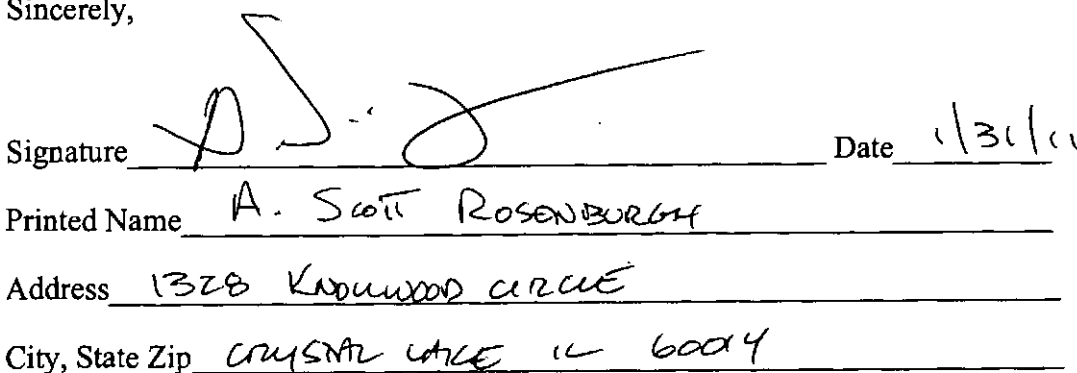 Sincerely,
Signature Date 1/31/11
Printed Name A. SCOTT ROSENBURGH
Address 1328 KNOLLWOOD CIRCLE
City, State Zip CRYSTAL LAKE IL 60014